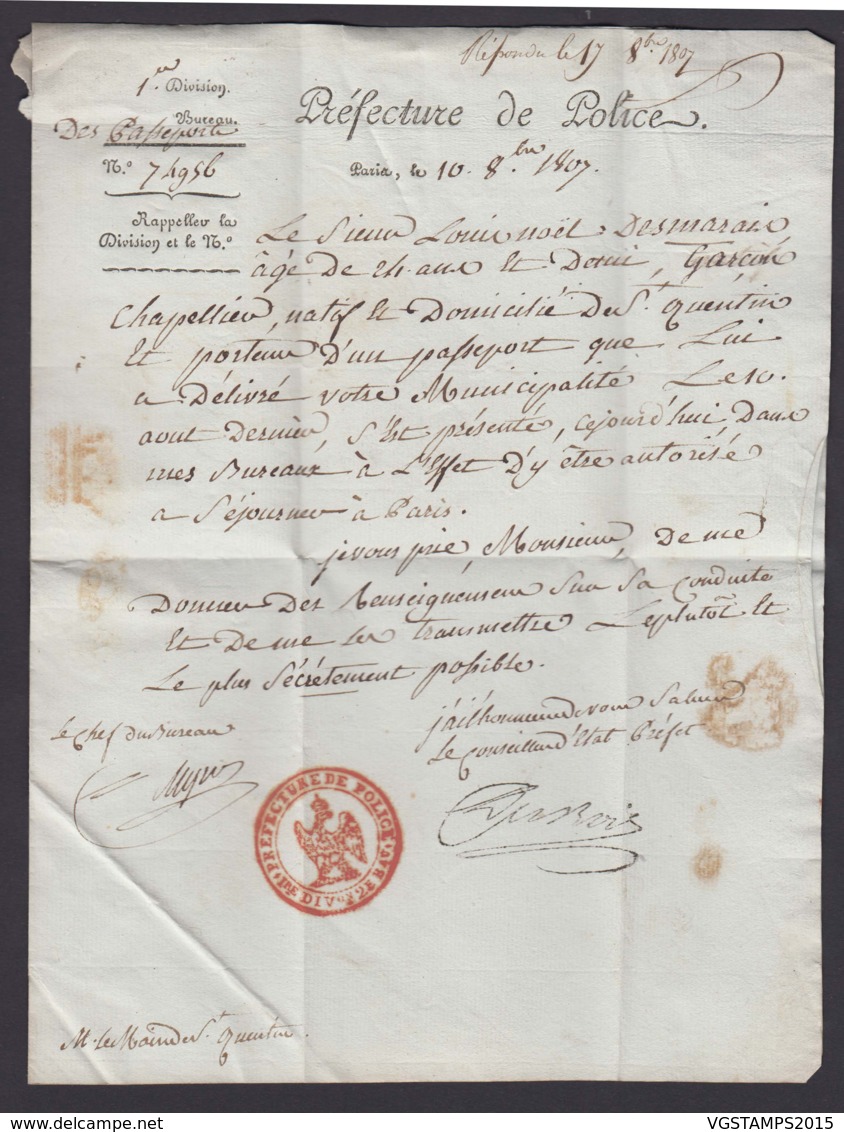 Répondu le 17 8bre 1807
1ere Division.
Bureau.
Des Passeports
N.° 74956
Rappeller la
Division et le N.°
Préfecture de Police.
Paris, le 10. 8.bre 1807.
Le Sieur Louis noël Desmarais,
âgé De 24. ans Et Demi, Garçon
Chapellier, natif Et Domicilié De St. Quentin
Et porteur D'un passeport que Lui
a Délivré votre Municipalité Le 10.
aout Dernier, s'Est présenté, cejourd'hui, Dans
mes Bureaux à L'Effet D'y être autorisé
a Séjourner à Paris.
je vous prie, Monsieur, De me
Donner Des Renseignemens Sur Sa Conduite
Et De me les transmettre Le plutôt Et
Le plus Sécrétement possible.
j'ai l'honneur de vous Saluer
Le Conseiller d'Etat Préfet
Le Chef du Bureau
DuBois
PREFECTURE DE POLICE
1RE DIVON 2E BAU
M. Le Maire de St. Quentin.
www.delcampe.net
VGSTAMPS2015